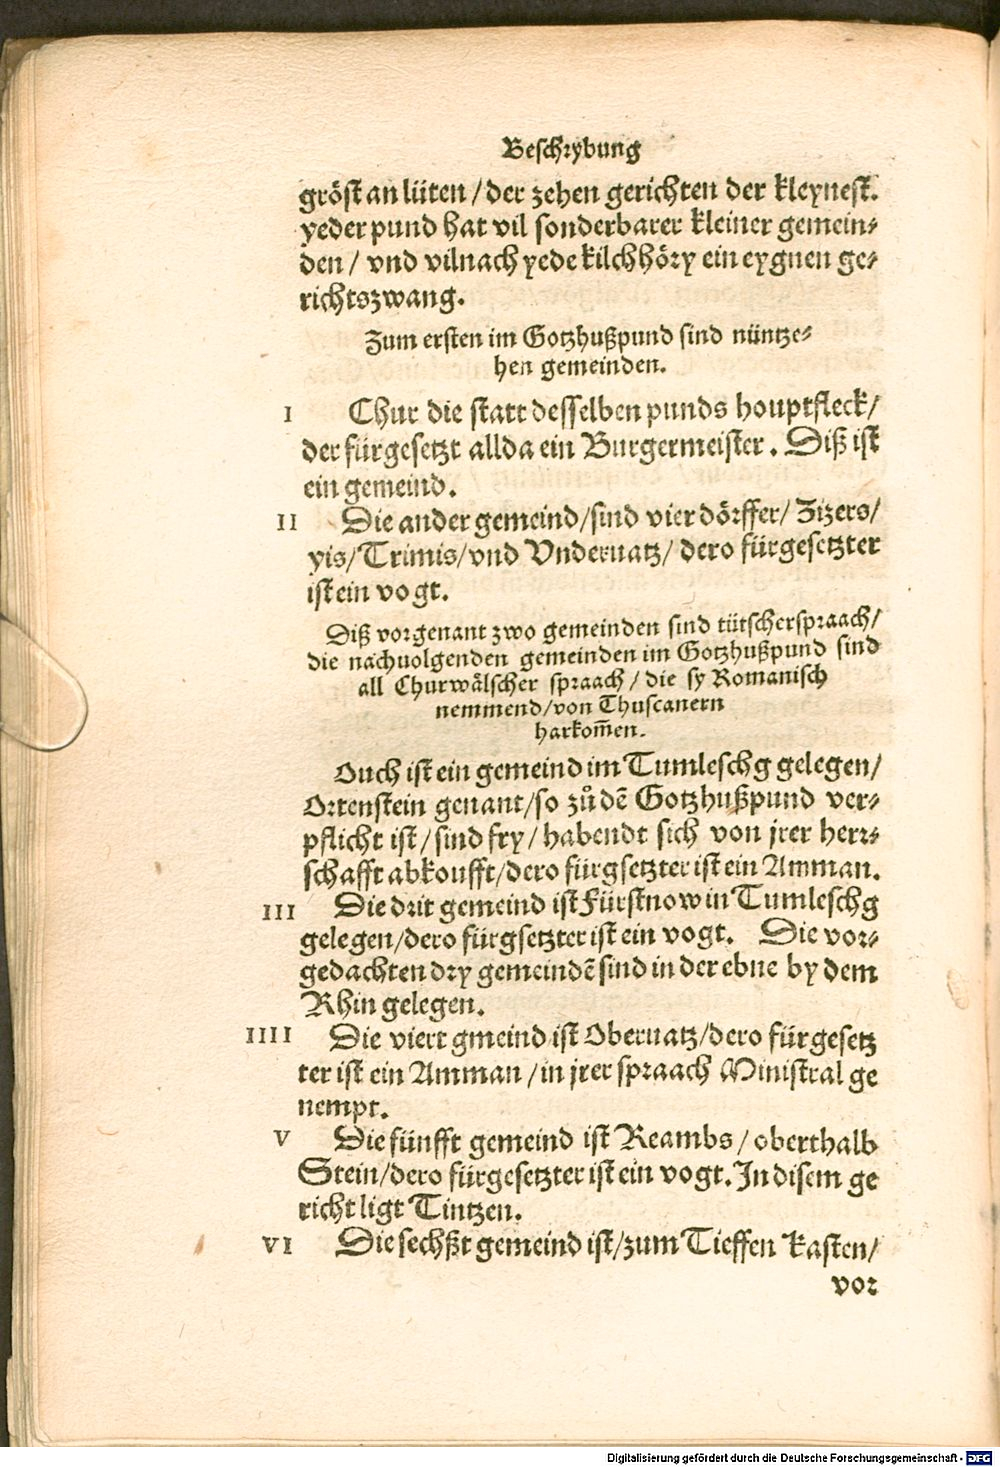 Beschrybung
gröst an lüten / der zehen gerichten der kleynest.
yeder pund hat vil sonderbarer kleiner gemein-
den / vnd vilnach yede kilchhöry ein eygnen ge-
richtszwang.
Zum ersten im Gotzhußpund sind nüntze-
hen gemeinden.
I Chur die statt desselben punds houptfleck /
der fürgesetzt allda ein Burgermeister. Diß ist
ein gemeind.
II Die ander gemeind / sind vier dörffer / Zizers /
yis / Trimis / vnd Vnderuatz / dero fürgesetzter
ist ein vogt.
Diß vorgenant zwo gemeinden sind tütscher spraach /
die nachuolgenden gemeinden im Gotzhußpund sind
all Churwälscher spraach / die sy Romanisch
nemmend / von Thuscanern
harkom̃en.
Ouch ist ein gemeind im Tumleschg gelegen /
Ortenstein genant / so zů dē Gotzhußpund ver-
pflicht ist / sind fry / habendt sich von jrer herr-
schafft abkoufft / dero fürgsetzter ist ein Amman.
III Die drit gemeind ist Fürstnow in Tumleschg
gelegen / dero fürgsetzter ist ein vogt. Die vor-
gedachten dry gemeindē sind in der ebne by dem
Rhin gelegen.
IIII Die viert gmeind ist Oberuatz / dero fürgesetz
ter ist ein Amman / in jrer spraach Ministral ge
nempt.
V Die fünfft gemeind ist Reambs / oberthalb
Stein / dero fürgesetzter ist ein vogt. In disem ge
richt ligt Tintzen.
VI Die sechßt gemeind ist / zum Tieffen Kasten /
vor
Digitalisierung gefördert durch die Deutsche Forschungsgemeinschaft - DFG